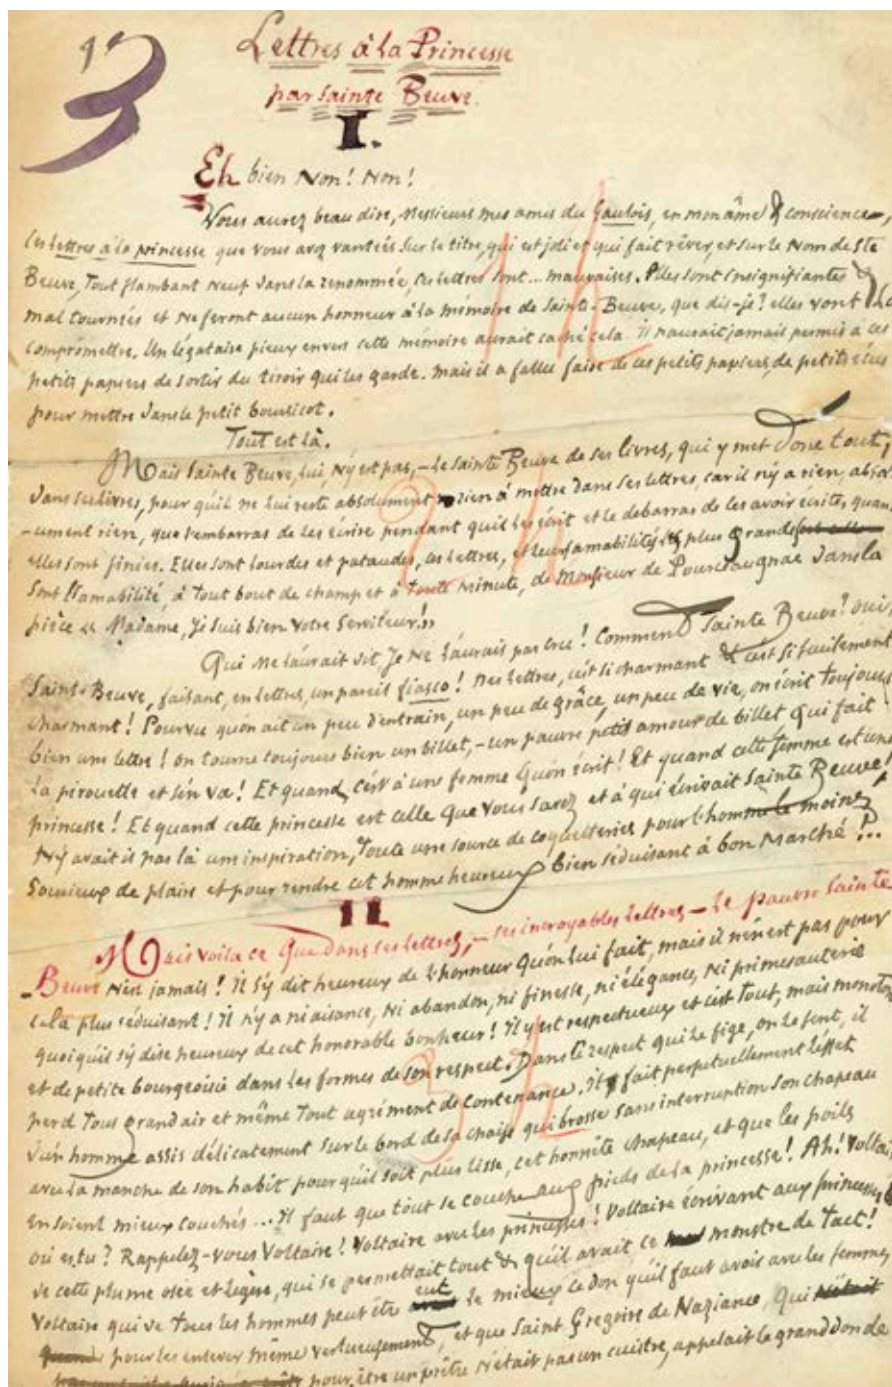 3
Lettres à la Princesse
par Sainte Beuve.
I.
Eh bien Non! Non!
Vous aurez beau dire, Messieurs mes amis du Gaulois, en mon âme & conscience,
ces lettres à la princesse que vous avez vantées sur le titre, qui est joli et qui fait rêver, et sur le nom de Ste
Beuve, tout flambant neuf dans la renommée, ces lettres sont... mauvaises. Elles sont insignifiantes &
mal tournées et ne feront aucun honneur à la mémoire de Sainte-Beuve, que dis-je? elles vont la
compromettre. Un légataire pieux envers cette mémoire aurait caché cela. Il n'aurait jamais permis à ces
petits papiers de sortir du tiroir qui les garde. Mais il a fallu faire de ces petits papiers, de petits écus
pour mettre dans le petit boursicot.
Tout est là.
Mais Sainte Beuve, lui, n'y est pas, – le Sainte Beuve de ses livres, qui y met donc tout,
dans ses livres, pour qu'il ne lui reste absolument rien à mettre dans ses lettres, car il n'y a rien, absol
-ument rien, que l'embarras de les écrire pendant qu'il les écrit et le debarras de les avoir écrites, quan
elles sont finies. Elles sont lourdes et pataudes, ces lettres, et leurs amabilités les plus grandes
sont l'amabilité, à tout bout de champ et à toute minute, de Monsieur de Pourceaugnac dans la
pièce « Madame, je suis bien votre serviteur! »
Qui me l'aurait dit je ne l'aurais pas cru! Comment Sainte Beuve? oui,
Sainte-Beuve, faisant, en lettres, un pareil fiasco! Des lettres, c'est si charmant & c'est si facilement
charmant! Pourvu qu'on ait un peu d'entrain, un peu de grâce, un peu de vie, on écrit toujours
bien une lettre! on tourne toujours bien un billet, – un pauvre petit amour de billet qui fait
la pirouette et s'en va! Et quand c'est à une femme qu'on écrit! Et quand cette femme est une
princesse! Et quand cette princesse est celle que vous savez et à qui écrivait Sainte Beuve!
N'y avait il pas là une inspiration, toute une source de coquetteries pour l'homme le moins
soucieux de plaire et pour rendre cet homme heureux bien séduisant à bon marché!..
II
Mais voila ce que dans ses lettres, – ses incroyables lettres – le pauvre Sainte
-Beuve n'est jamais! Il s'y dit heureux de l'honneur qu'on lui fait, mais il n'en est pas pour
cela plus séduisant! Il n'y a ni aisance, ni abandon, ni finesse, ni élégance, ni primesauterie
quoiqu'il s'y dise heureux de cet honorable bonheur! Il y est respectueux et c'est tout, mais monoton
et de petite bourgeoisie dans les formes de son respect. Dans ce respect qui le fige, on le sent, il
perd tout grand air et même tout agrément de contenance. Il fait perpetuellement l'effet
d'un homme assis délicatement sur le bord de sa chaise qui brosse sans interruption son chapeau
avec la manche de son habit pour qu'il soit plus lisse, cet honnête chapeau, et que les poils
en soient mieux couchés... Il faut que tout se couche aux pieds de la princesse! Ah! Voltai
où es tu? Rappelez-vous Voltaire! Voltaire avec les princesses! Voltaire écrivant aux princesses
de cette plume osée et légère, qui se permettait tout & qu'il avait ce monstre de tact!
Voltaire qui de tous les hommes peut être eut le mieux ce don qu'il faut avoir avec les femmes
pour les enlever même vertueusement, et que Saint Gregoire de Naziance, qui
pour être un prêtre n'était pas un cuistre, appelait le grand don de